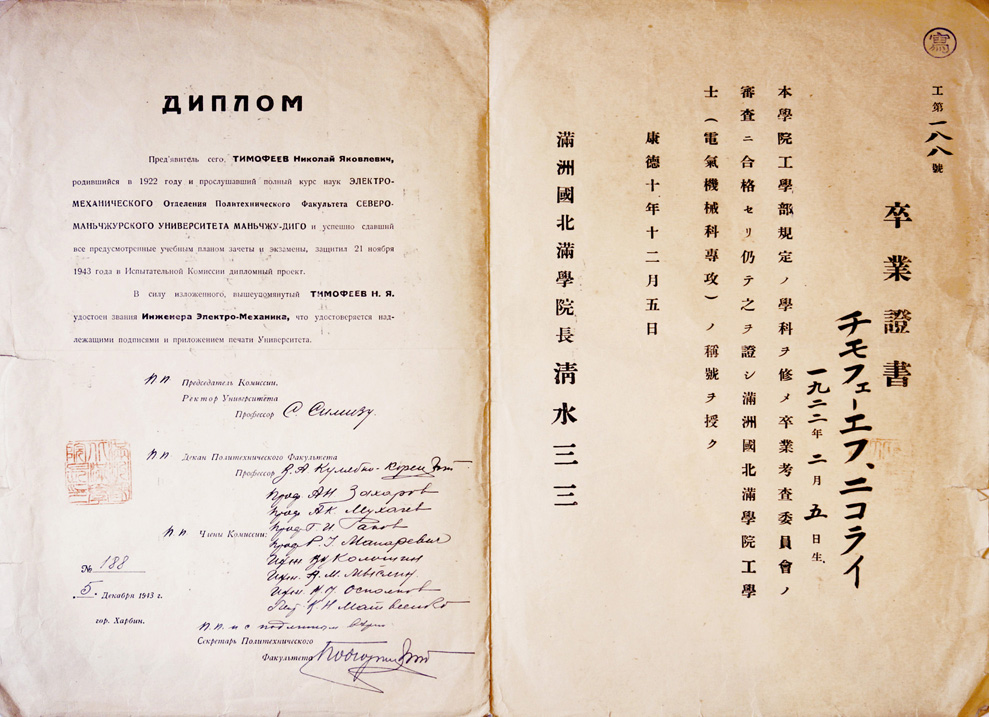 ДИПЛОМ
Пред'явитель сего, ТИМОФЕЕВ Николай Яковлевич,
родившийся в 1922 году и прослушавший полный курс наук ЭЛЕКТРО-
МЕХАНИЧЕСКОГО Отделения Политехнического Факультета СЕВЕРО-
МАНЬЧЖУРСКОГО УНИВЕРСИТЕТА МАНЬЧЖУ-ДИГО и успешно сдавший
все предусмотренные учебным планом зачеты и экзамены, защитил 21 ноября
1943 года в Испытательной Комиссии дипломный проект.
В силу изложенного, вышеупомянутый ТИМОФЕЕВ Н. Я.
удостоен звания Инженера Электро-Механика, что удостоверяется над-
лежащими подписями и приложением печати Университета.
п.п. Председатель Комиссии,
Ректор Университета
Профессор С. Симизу.
п.п. Декан Политехнического Факультета
Профессор В. А. Кулябко-Корецкий
Проф. А. Н. Захаров
Проф. А. К. Мухачев
Проф. Г. И. Ганов
п.п. Члены Комиссии:
Проф. Р. У. Макаревич
Инж. Колошин
Инж. А. М. Мыслин
Инж.
К. Н. Матвеенко
№ 188
5. Декабря 1943 г.
гор. Харбин.
п.п. и с подлинным верно:
Секретарь Политехнического
Факультета
寫
工第一八八號
卒業證書
チモフェーエフ、ニコライ
一九二二年二月五日生
本學院工學部規定ノ學科ヲ修メ卒業考査委員會ノ
審査ニ合格セリ仍テ之ヲ證シ滿洲國北滿學院工學
士(電氣機械科專攻)ノ稱號ヲ授ク
康德十年十二月五日
滿洲國北滿學院長淸水三三